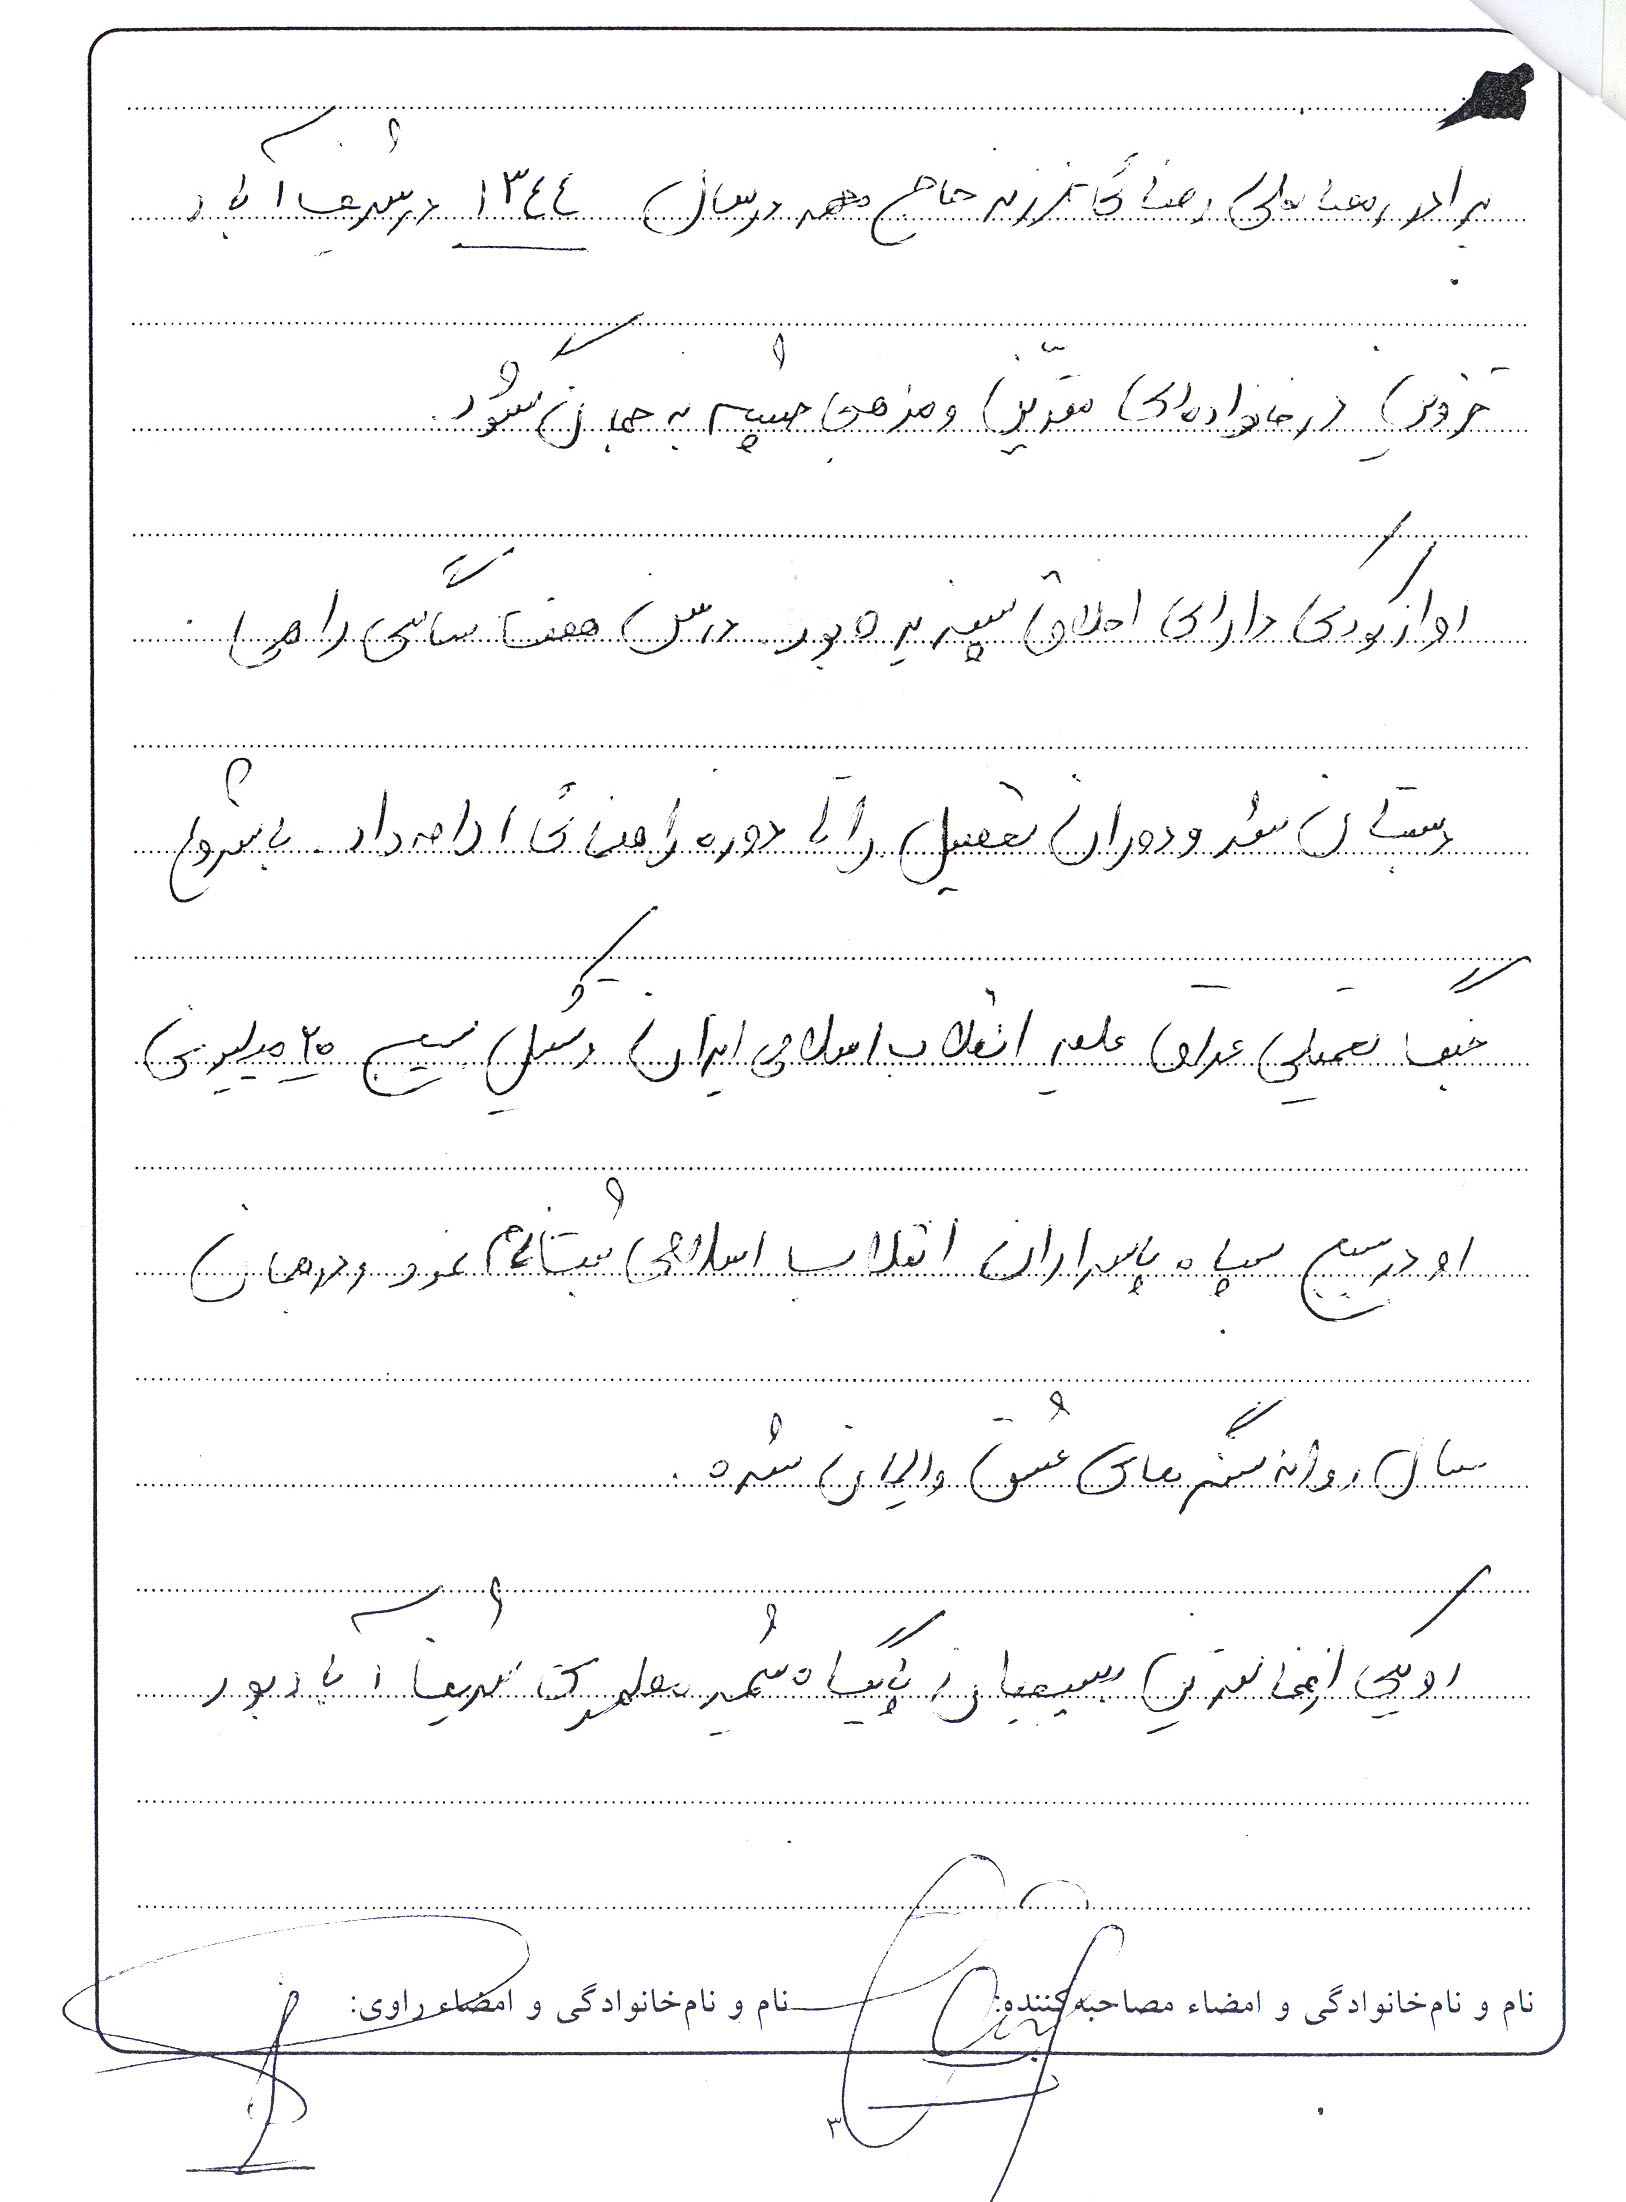 برادر رمضانعلی رضائی فرزند حاج محمد در سال ۱۳۴۴ در شریف آباد
قزوین در خانواده‌ای متدیّن و مذهبی چشم به جهان گشود.
او از کودکی دارای اخلاق پسندیده بود. در سن هفت سالگی راهی
دبستان شد و دوران تحصیل را تا دوره راهنمائی ادامه داد. با شروع
جنگ تحمیلی عراق علیه انقلاب اسلامی ایران و تشکیل بسیج ۲۰ میلیونی
او در بسیج سپاه پاسداران انقلاب اسلامی ثبت نام نمود و در همان
سال روانه سنگرهای عشق و ایمان شده.
او یکی از فعالترین بسیجیان پایگاه شهید شریف آباد بود
نام و نام‌خانوادگی و امضاء مصاحبه‌کننده: نام و نام‌خانوادگی و امضاء راوی:
۳